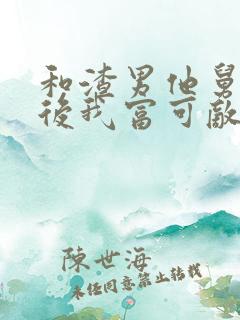 和渣男他舅
後我富可敵
陳世海
未經同意禁止轉載